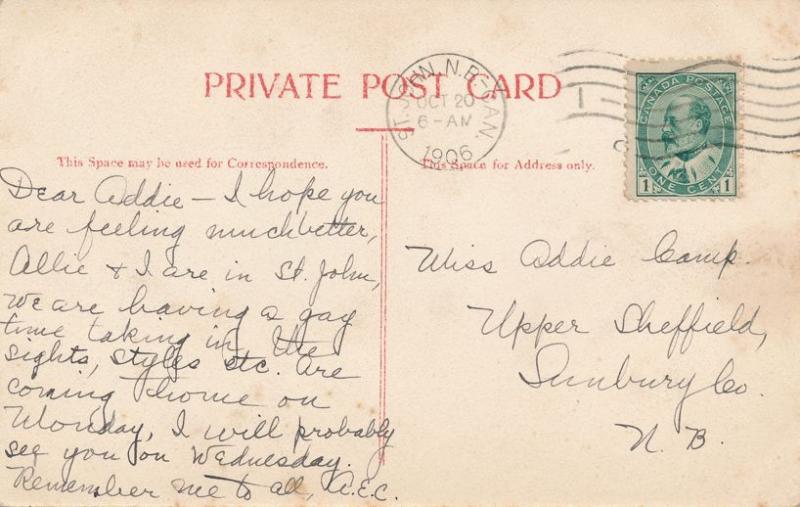 PRIVATE POST CARD
ST. JOHN, N.B-CAN.
OCT 20
6-AM
1906
CANADA POSTAGE
ONE CENT
1 1
This Space may be used for Correspondence.
Dear Addie — I hope you
are feeling much better,
Allie & I are in St. John,
We are having a gay
time taking in the
sights, styles etc. Are
coming home on
Monday, I will probably
see you on Wednesday.
Remember me to all, A.E.C.
This Space for Address only.
Miss Addie Camp.
Upper Sheffield,
Sunbury Co.
N. B.